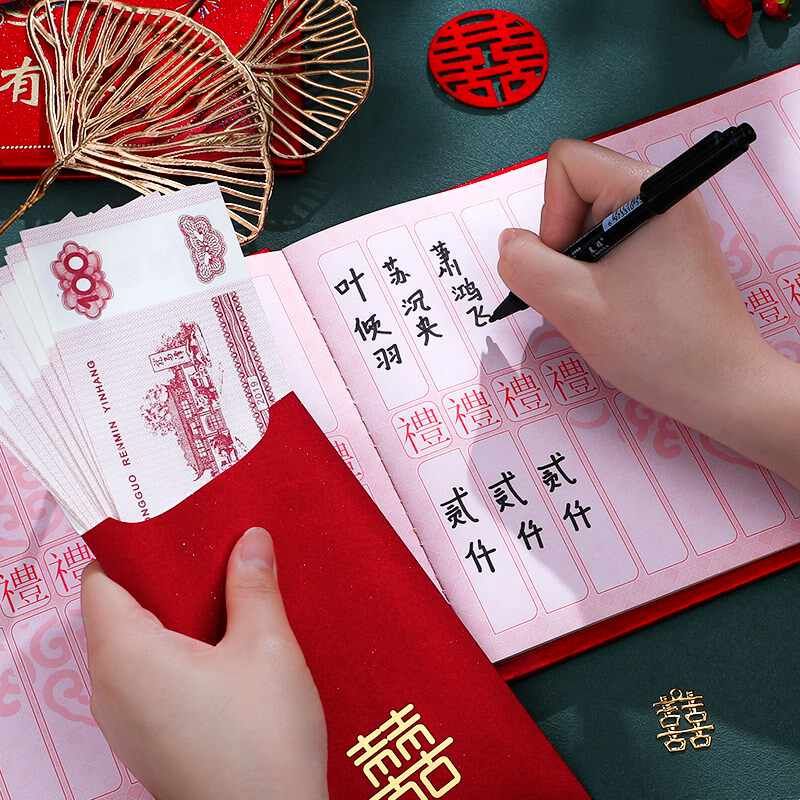 有
囍
100
ZHONGGUO RENMIN YINHANG
2019
叶倾羽
苏沉央
萧鸿飞
禮 禮 禮 禮
贰仟
贰仟
贰仟
禮
禮 禮
囍
囍